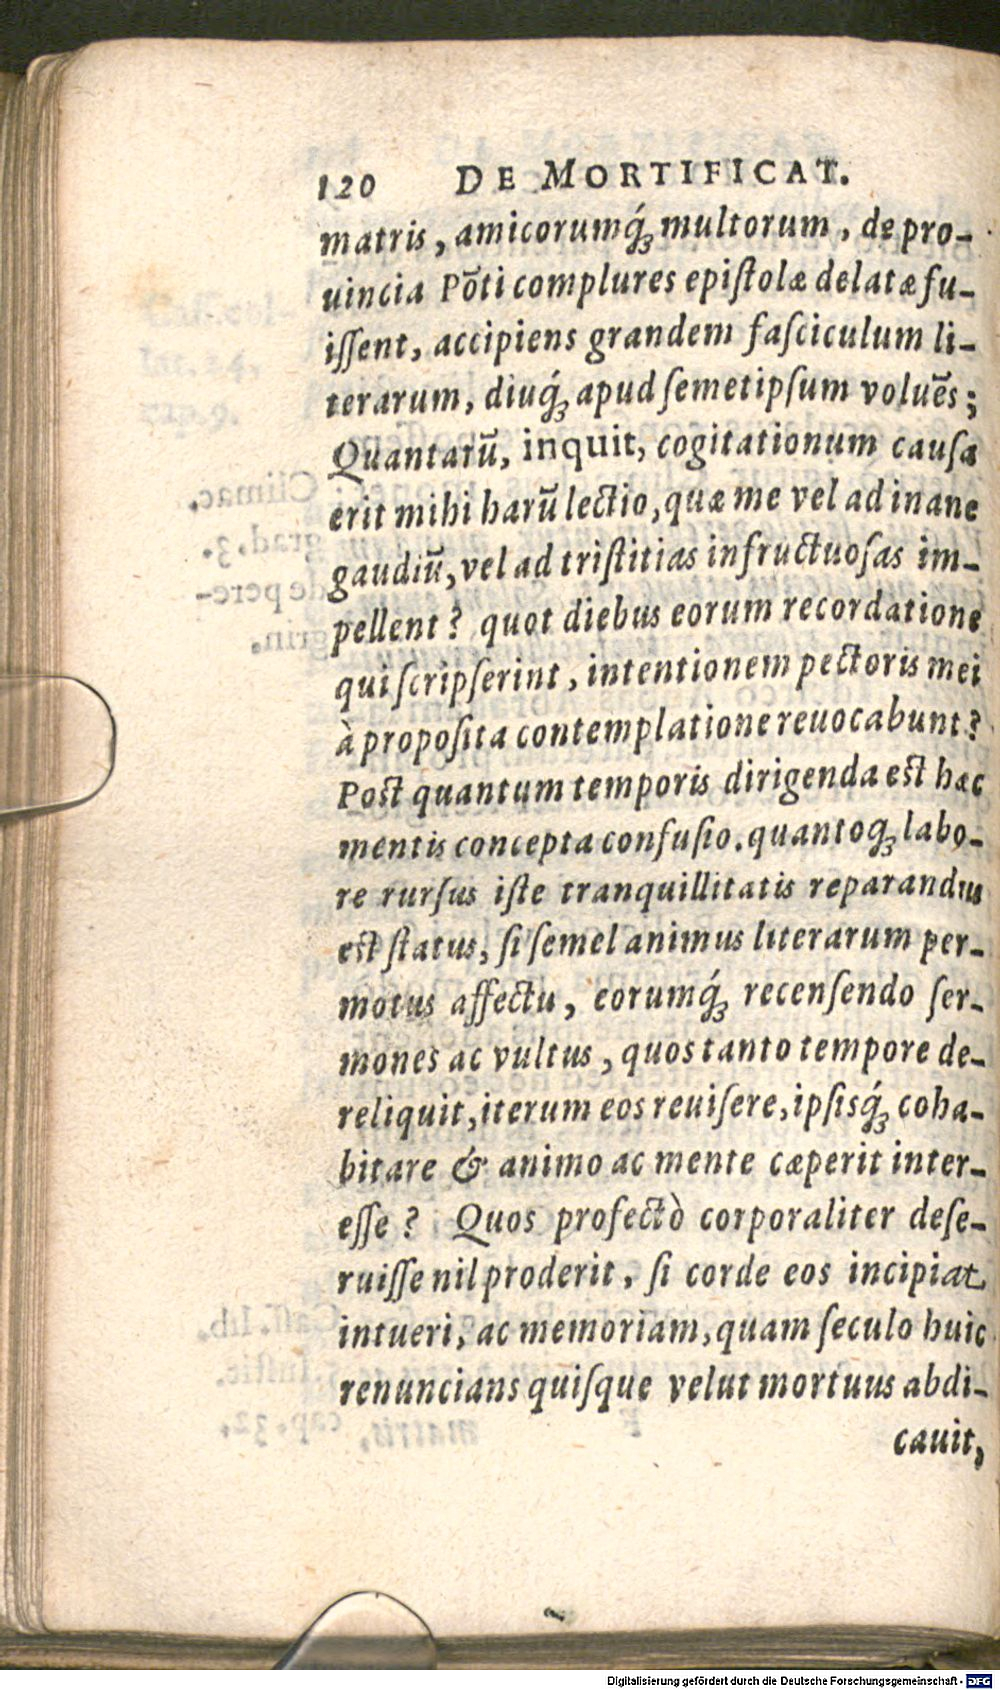 120 DE MORTIFICAT.
matris, amicorumq́ꝫ multorum, de pro-
uincia Põti complures epiſtolæ delatæ fu-
iſſent, accipiens grandem faſciculum li-
terarum, diuq́ꝫ apud ſemetipſum voluẽs;
Quantarũ, inquit, cogitationum cauſa
erit mihi harũ lectio, quæ me vel ad inane
gaudiũ, vel ad triſtitias infructuoſas im-
pellent? quot diebus eorum recordatione
qui ſcripſerint, intentionem pectoris mei
à propoſita contemplatione reuocabunt?
Poſt quantum temporis dirigenda eſt hæc
mentis concepta confuſio. quantoqꝫ labo-
re rurſus iſte tranquillitatis reparandus
eſt ſtatus, ſi ſemel animus literarum per-
motus affectu, eorumq́ꝫ recenſendo ſer-
mones ac vultus, quos tanto tempore de-
reliquit, iterum eos reuiſere, ipſisq́ꝫ coha-
bitare & animo ac mente cæperit inter-
eſſe? Quos profectò corporaliter deſe-
ruiſſe nil proderit, ſi corde eos incipiat
intueri, ac memoriam, quam ſeculo huic
renuncians quiſque velut mortuus abdi-
cauit,
Digitalisierung gefördert durch die Deutsche Forschungsgemeinschaft - DFG